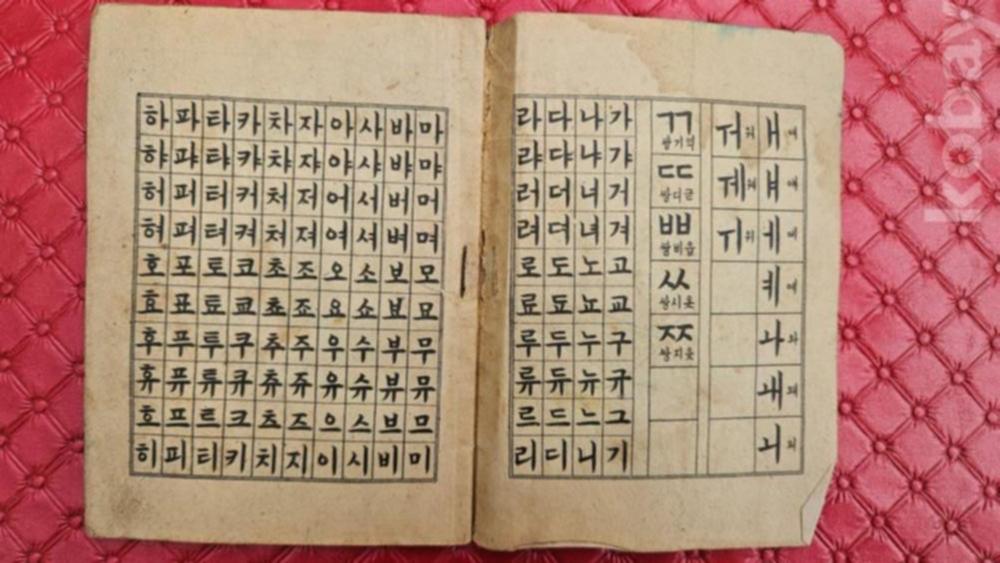 ㅐ ㅒ ㅔ ㅖ ㅘ ㅙ ㅚ
ㅝ ㅞ ㅟ
ㄲ 쌍기역
ㄸ 쌍디귿
ㅃ 쌍비읍
ㅆ 쌍시옷
ㅉ 쌍지읒
가 갸 거 겨 고 교 구 규 그 기
나 냐 너 녀 노 뇨 누 뉴 느 니
다 댜 더 뎌 도 됴 두 듀 드 디
라 랴 러 려 로 료 루 류 르 리
마 먀 머 며 모 묘 무 뮤 므 미
바 뱌 버 벼 보 뵤 부 뷰 브 비
사 샤 서 셔 소 쇼 수 슈 스 시
아 야 어 여 오 요 우 유 으 이
자 쟈 저 져 조 죠 주 쥬 즈 지
차 챠 처 쳐 초 쵸 추 츄 츠 치
카 캬 커 켜 코 쿄 쿠 큐 크 키
타 탸 터 텨 토 툐 투 튜 트 티
파 퍄 퍼 펴 포 표 푸 퓨 프 피
하 햐 허 혀 호 효 후 휴 흐 히
kobay